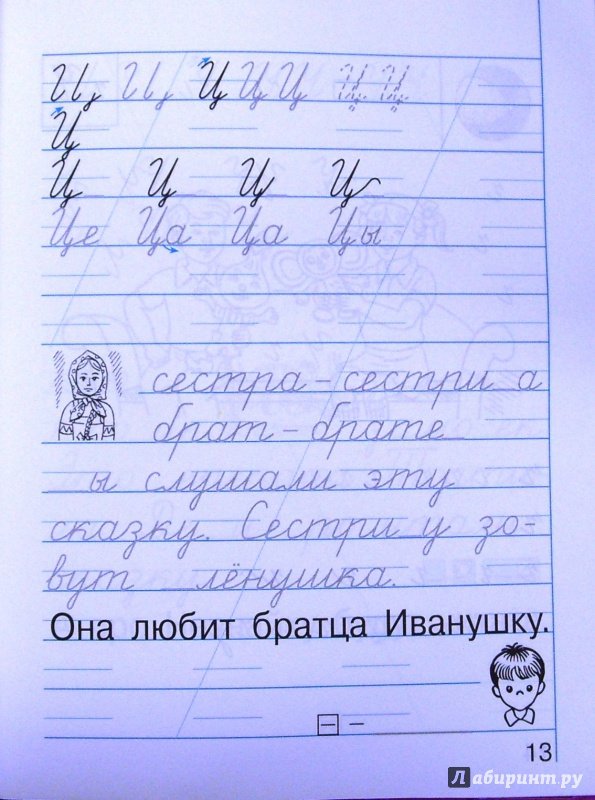 Ц Ц Ц Ц Ц Ц Ц
Ц
Ц Ц Ц Ц
Це Ца Ца Цы
сестра – сестри а
брат – брате
ы слушали эту
сказку. Сестри у зо-
вут лёнушка.
Она любит братца Иванушку.
13
Лабиринт.ру